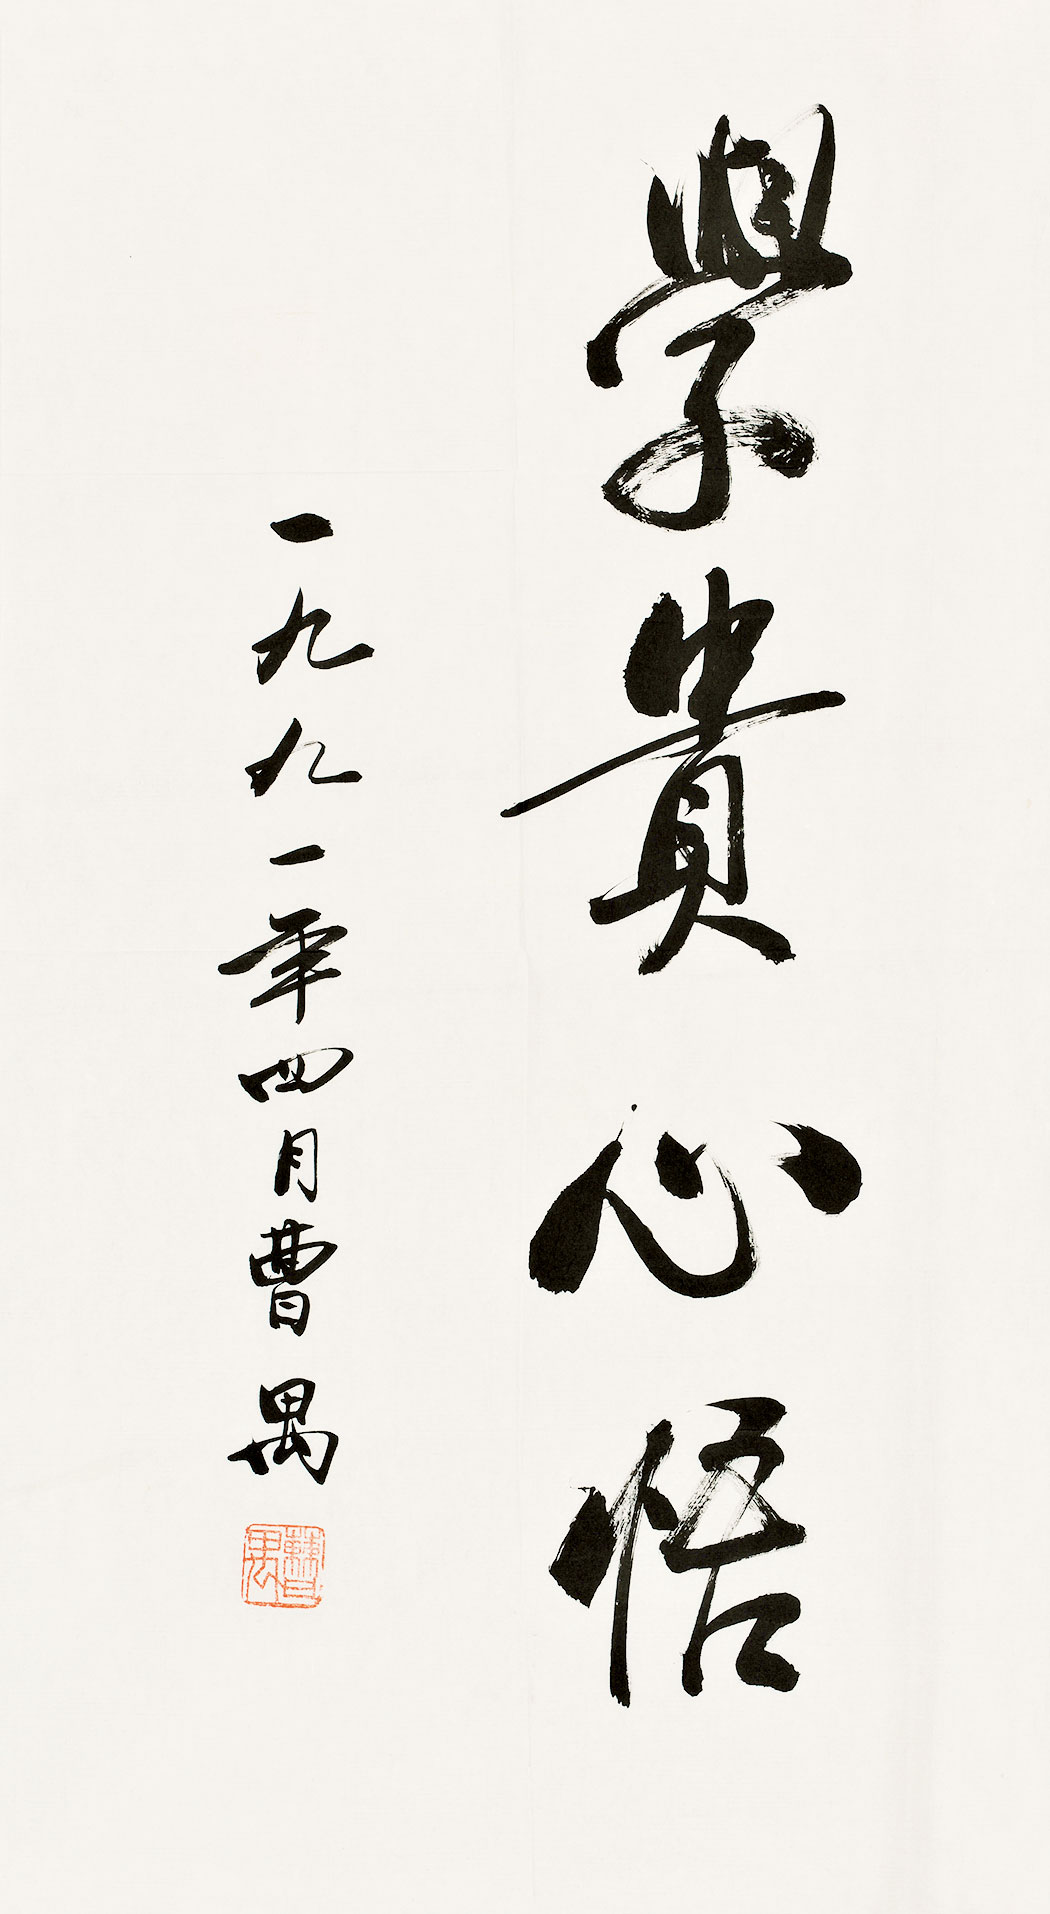 學貴心悟
一九九一年四月曹禺
曹禺